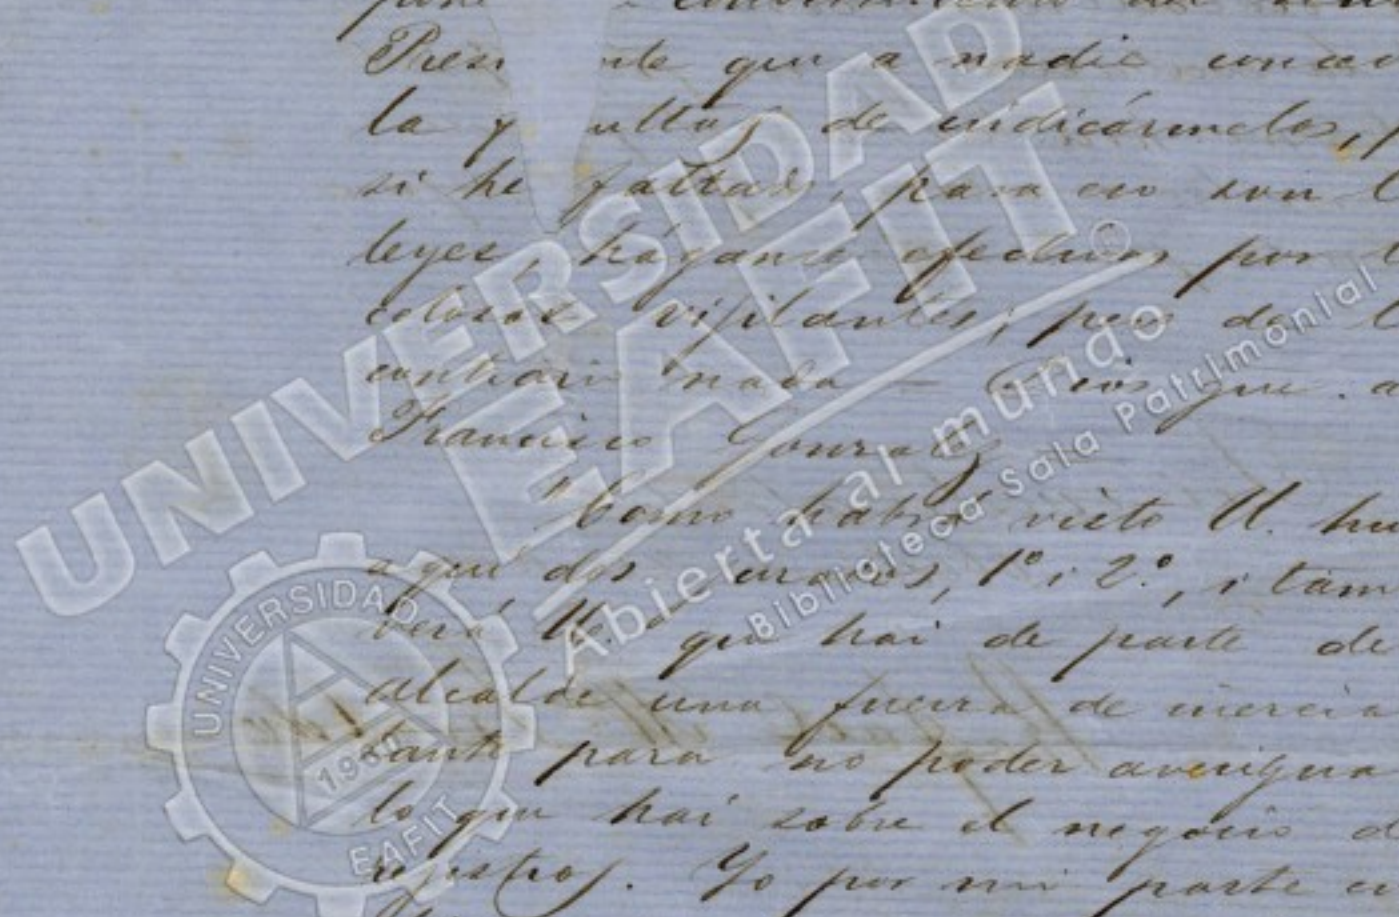 Presi nte que a nadie conce
la f ultad de indicármelos,
si he faltado, para eso son l
leyes, hágance efectivas por l
celosos vijilantes; pero de l
contrario nada — que
Francisco Gonzalez
Como habrá visto U. hu
aqui dos, 1º i 2º, i tam
verá U. que hai de parte de
alcalde una fuerza de inercia
tante para no poder averigua
lo que hai sobre el negocio d
registros. Yo por mi parte
UNIVERSIDAD
EAFIT®
Abierta al mundo
Biblioteca Sala Patrimonial
UNIVERSIDAD
1960
EAFIT